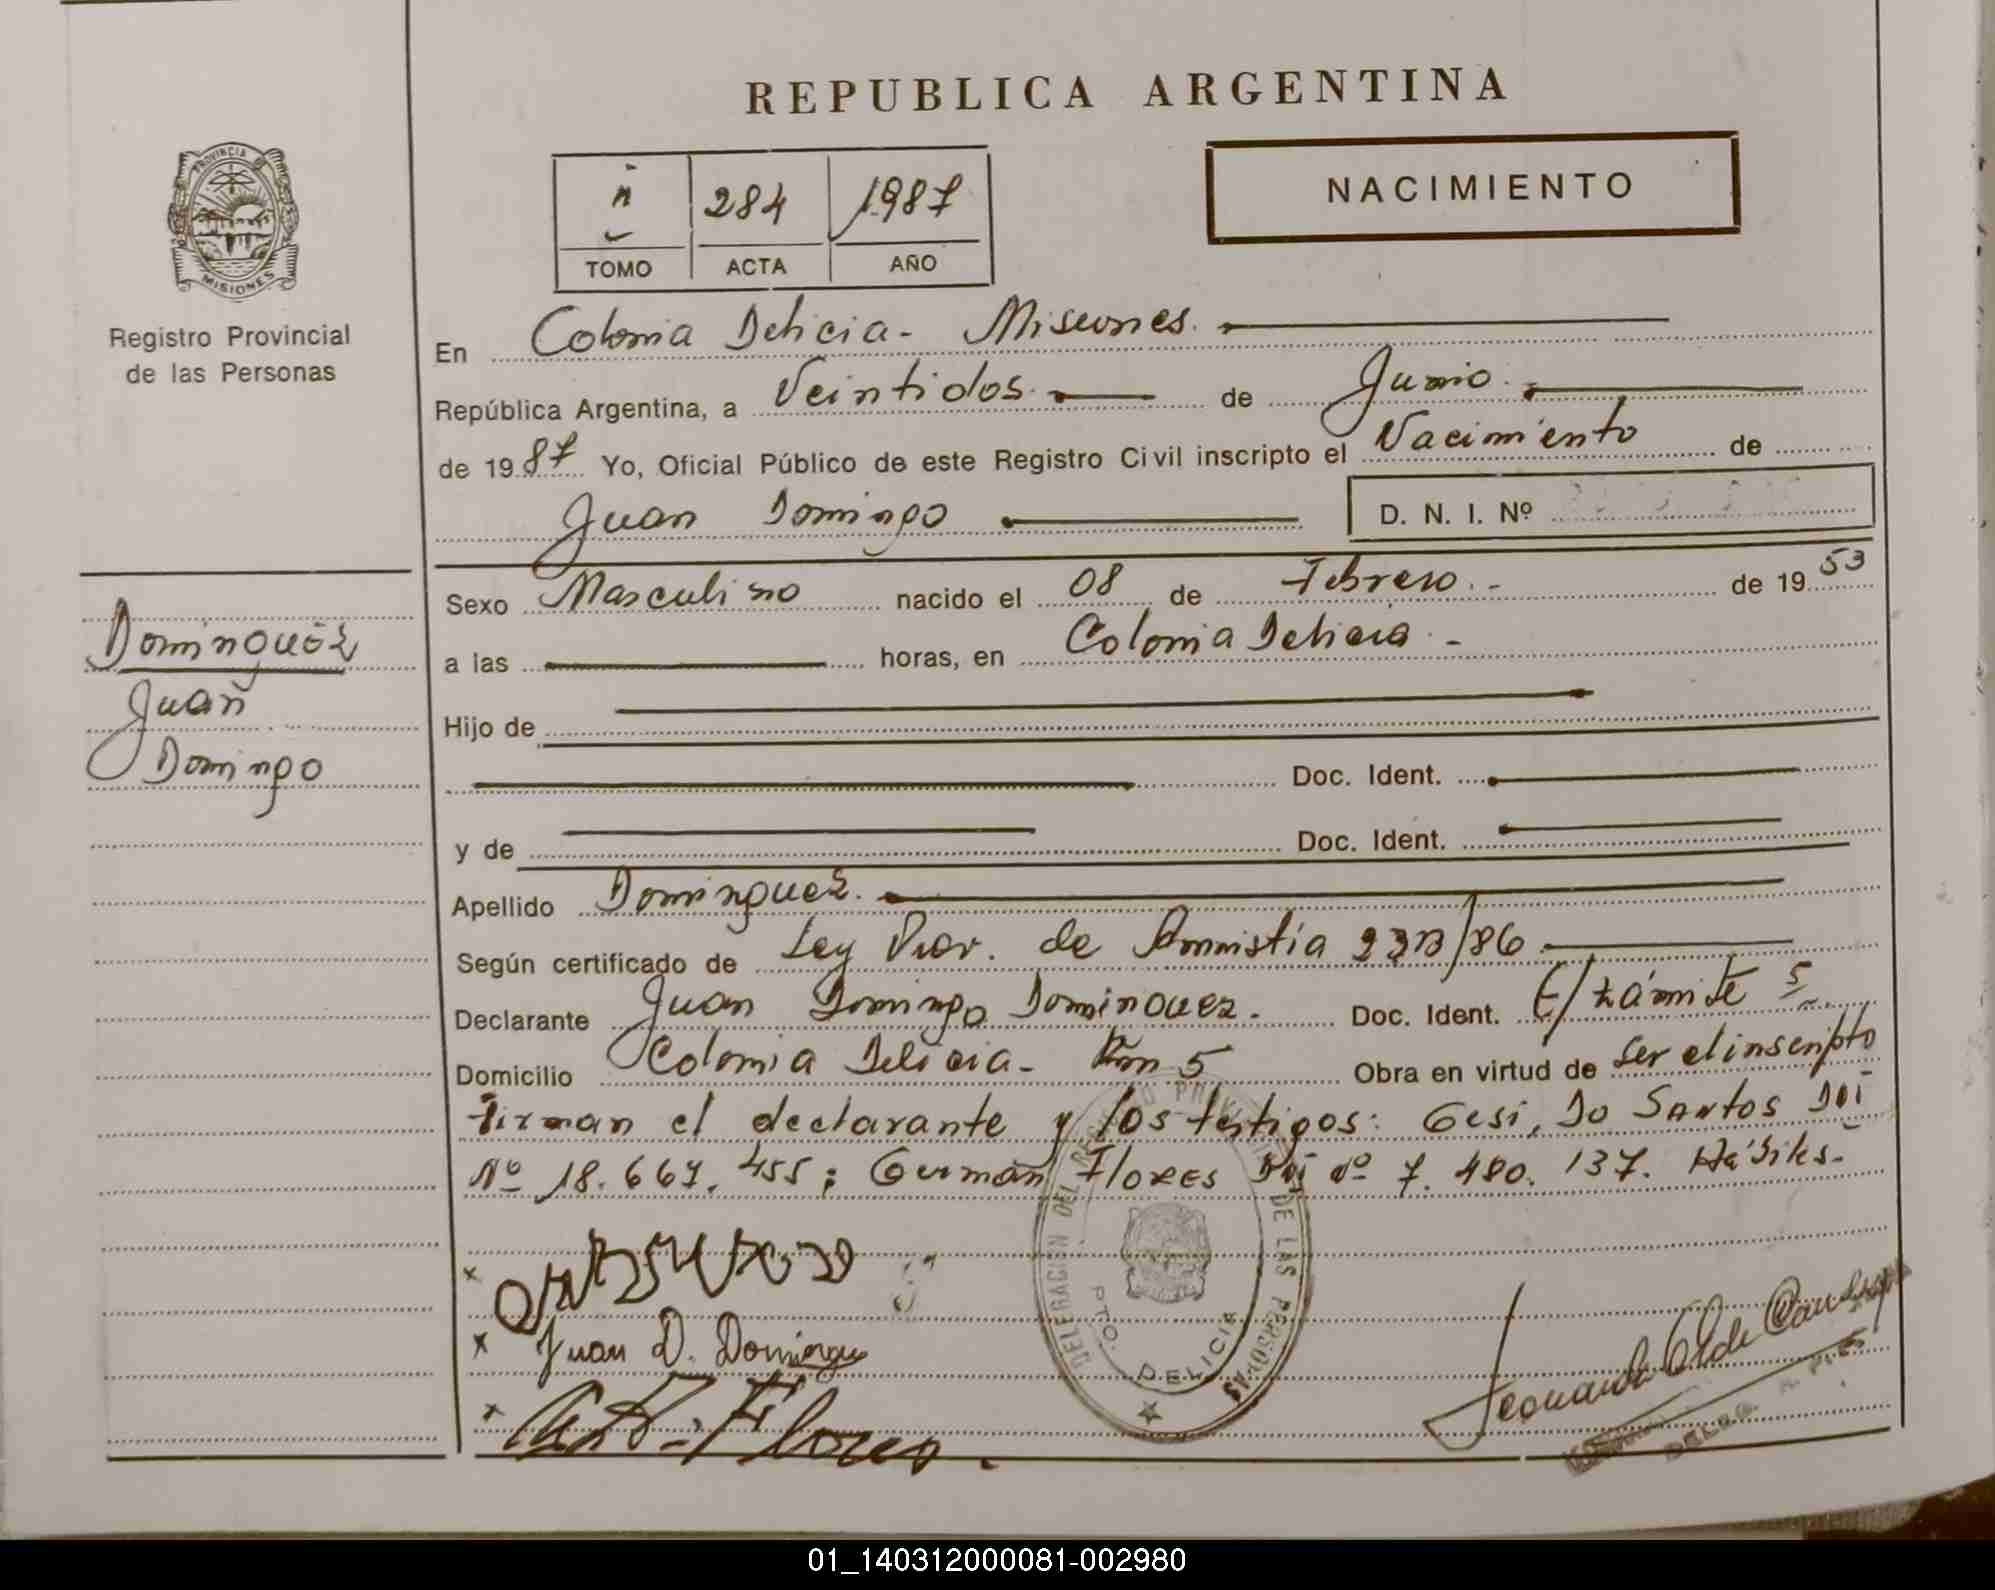 REPUBLICA ARGENTINA
NACIMIENTO
ñ 284 1987
TOMO ACTA AÑO
PROVINCIA DE MISIONES
Registro Provincial
de las Personas
En Colonia Delicia - Misiones.
República Argentina, a Veintidos de Junio
de 1987 Yo, Oficial Público de este Registro Civil inscripto el Nacimiento de
Juan Domingo D. N. I. Nº
Sexo Masculino nacido el 08 de Febrero. - de 1953
a las horas, en Colonia Delicia. -
Hijo de
Doc. Ident.
y de Doc. Ident.
Apellido Dominguez.
Según certificado de Ley Prov. de Amnistia /86
Declarante Juan Domingo Dominguez. Doc. Ident. E/trámite
Domicilio Colonia Delicia - Km 5 Obra en virtud de ser el inscripto
firman el declarante y los testigos: Gesi, Do Santos DNI
Nº 18.667.455; German Flores DNI nº 7.480.137. Hábiles.
Dominguez
Juan
Domingo
Juan D. Dominguez
Flores
DELEGACION DEL REGISTRO PROVINCIAL DE LAS PERSONAS
PTO. DELICIA
01_140312000081-002980